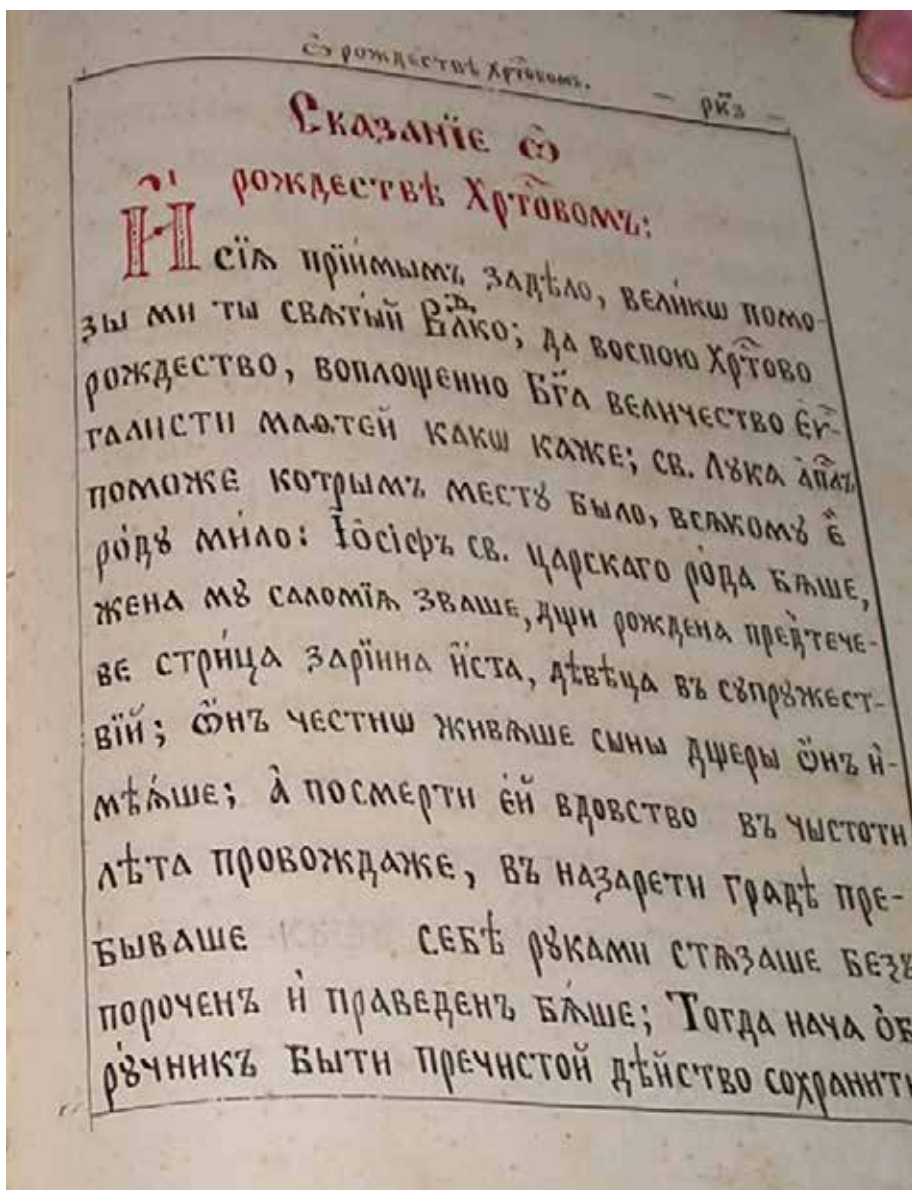 Ѡ рождествѣ Хрⷭ҇товомъ.
— рк҃з —
Сказанїе ѡ҃
рождествѣ Хрⷭ҇товомъ:
И҆ сїѧ прїи́мымъ задѣло, вели́кѡ помо-
зы ми ты свѧты́й Влⷣко; да воспою Хрⷭ҇тово
рождество, воплощенно Бг҃а величество є҆ѵⷢ-
галисти млѳтей какѡ каже; св. Лꙋка а҆пⷭ҇лъ
поможе котрымъ местꙋ было, всѧкомꙋ є҆
ро́дꙋ ми́ло: І҆ѡ҆сіфъ св. царскаго ро́да бѧше,
жена мꙋ саломїѧ зваше, дщи рождена предⸯтече-
ве стри́ца зарїинна и҆ста, дѣвѣца въ сꙋпрꙋжест-
вїй; ѻ҆нъ честнѡ живѧше сыны дщеры ѻ҆нъ и҆-
мѣѧ́ше; а҆ посмерти є҆й вдовство въ чыстоти
лѣта провождаже, въ назарети градѣ пре-
бываше себѣ рꙋками стѧзаше безꙋ
пороченъ и҆ праведенъ бѧ́ше; Тогда нача о҆б
рꙋ́чникъ быти пречистой дѣйство сохранити